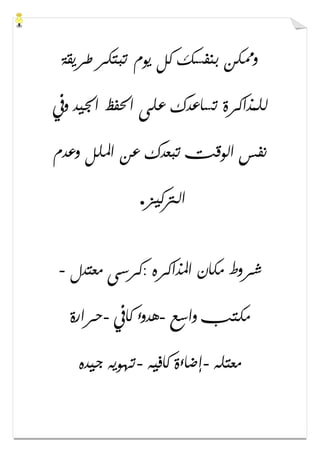 وممكن بنفسك كل يوم تبتكر طريقة
للمذاكرة تساعدك على الحفظ الجيد وفي
نفس الوقت تبعدك عن الملل وعدم
التركيز.
شروط مكان المذاكره :كرسى معتدل -
مكتب واسع -هدوء كافي -حرارة
معتله -إضاءة كافيه -تهويه جيده